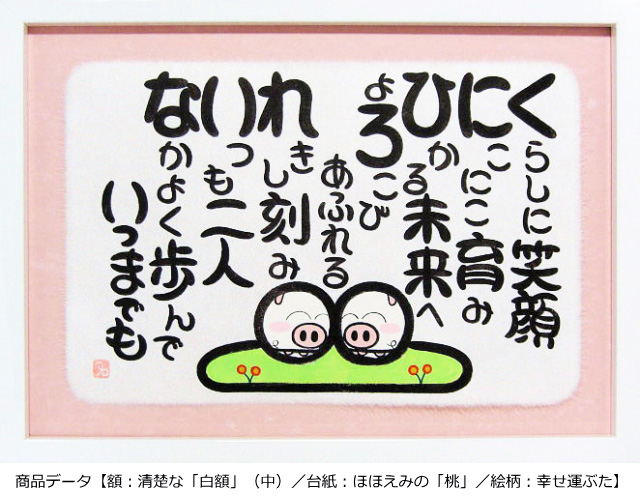 くらしに笑顔
にこにこ育み
ひかる未来へ
よろこび
あふれる
れきし刻み
いつも二人
なかよく歩んで
いつまでも
商品データ【額：清楚な「白額」（中）／台紙：ほほえみの「桃」／絵柄：幸せ運ぶた】